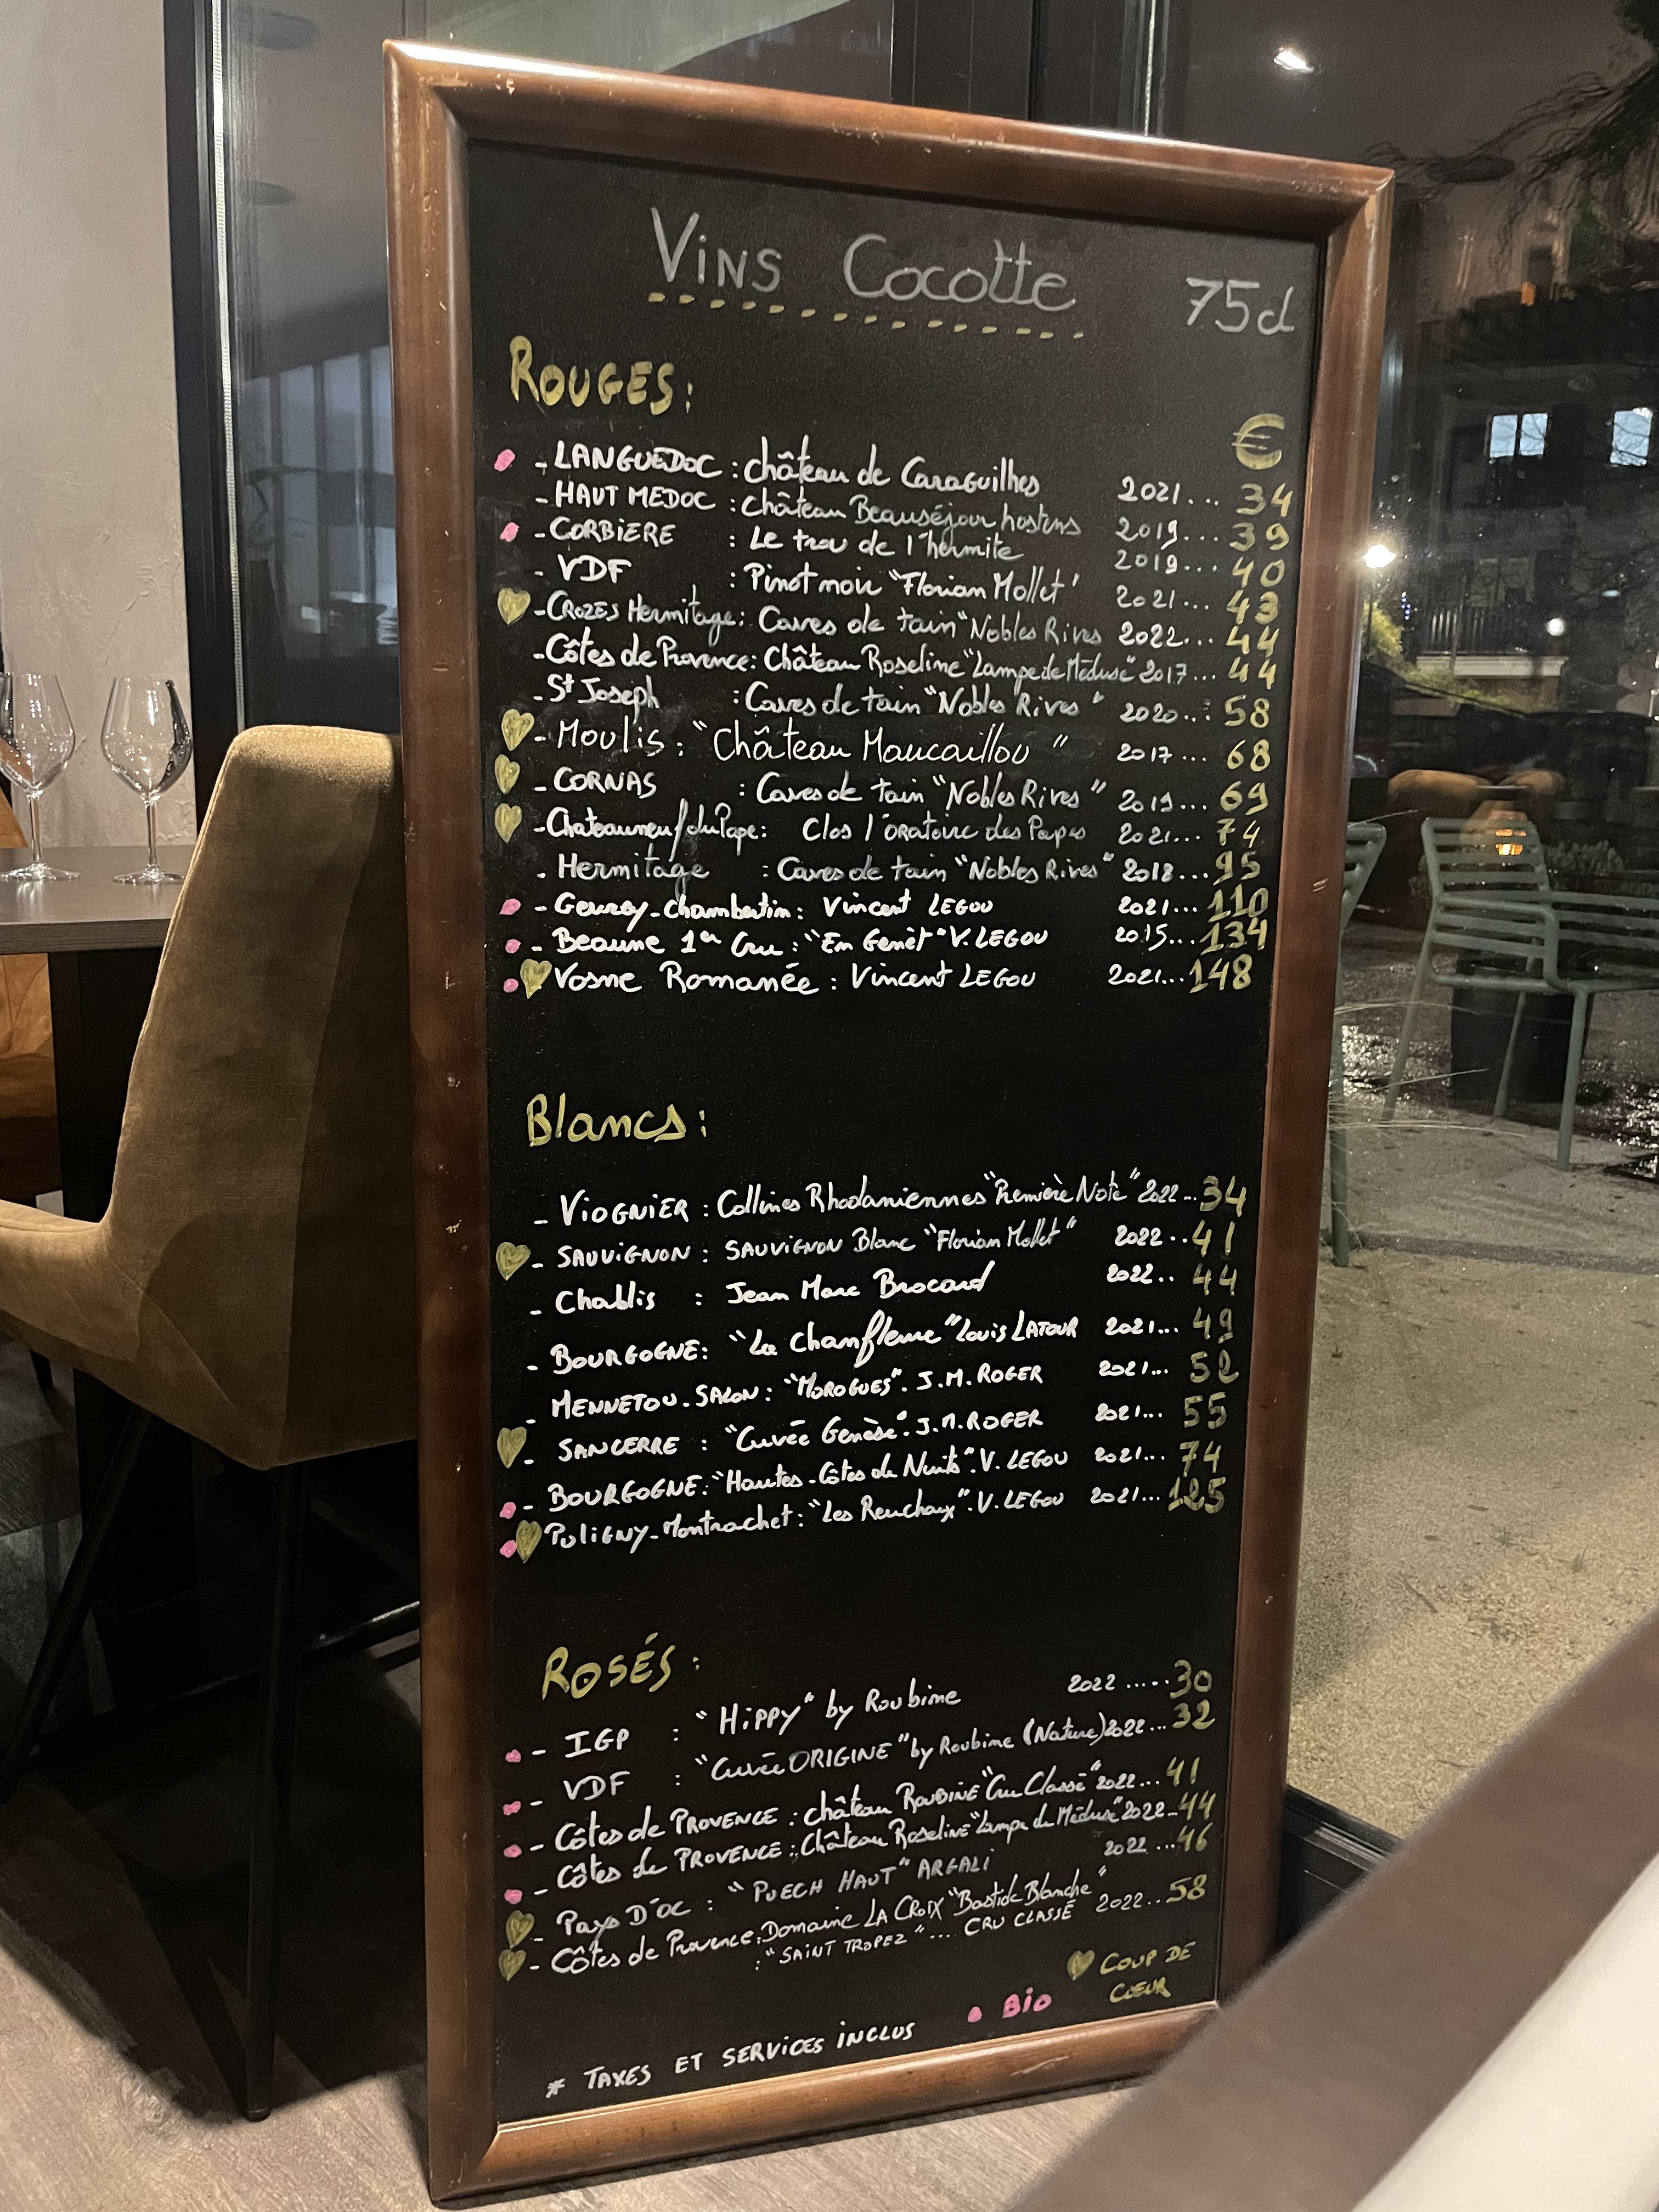 Vins Cocotte 75cl
ROUGES:
€
- LANGUEDOC : château de Caraguilhes 2021... 34
- HAUT MEDOC : Château Beauséjour hostens 2019... 39
- CORBIERE : Le trou de l'hermite 2019... 40
- VDF : Pinot noir "Florian Mollet" 2021... 43
- CROZES Hermitage: Caves de tain "Nobles Rives 2022... 44
- Côtes de Provence: Château Roseline "Lampe de Méduse" 2017... 44
- St Joseph : Caves de tain "Nobles Rives" 2020... 58
- Moulis: "Château Maucaillou" 2017... 68
- CORNAS : Caves de tain "Nobles Rives" 2019... 69
- Chateauneuf du Pape: Clos l'oratoire des Papes 2021... 74
- Hermitage : Caves de tain "Nobles Rives" 2018... 95
- Gevrey-chambertin: Vincent LEGOU 2021... 110
- Beaune 1er Cru : "En Genêt" V. LEGOU 2015... 134
Vosne Romanée : Vincent LEGOU 2021... 148
Blancs:
- VIOGNIER : Collines Rhodaniennes "Première Note" 2022... 34
- SAUVIGNON : SAUVIGNON Blanc "Florian Mollet" 2022.. 41
- Chablis : Jean Marc Brocard 2022.. 44
- BOURGOGNE: "La Chanfleure" Louis LATOUR 2021... 49
- MENNETOU-SALON: "MOROGUES". J.M. ROGER 2021... 52
- SANCERRE : "Cuvée Genèse". J.M. ROGER 2021... 55
- BOURGOGNE: "Hautes-Côtes de Nuits". V. LEGOU 2021... 74
PULIGNY-Montrachet: "Les Reuchaux". V. LEGOU 2021... 125
ROSÉS :
- IGP : "HiPPY" by Roubine 2022 ..... 30
- VDF : "Cuvée ORIGINE" by Roubine (Nature) 2022... 32
- Côtes de PROVENCE : château ROUBINE "Cru Classé" 2022... 41
- Côtes de PROVENCE : Château Roseline "Lampe de Méduse" 2022.. 44
- Pays D'oc : "PUECH HAUT" ARGALI 2022 ... 46
- Côtes de Provence: Domaine LA CROIX "Bastide Blanche"
: "SAINT TROPEZ" .... CRU CLASSÉ 2022... 58
COUP DE
CŒUR
Bio
* TAXES ET SERVICES INCLUS